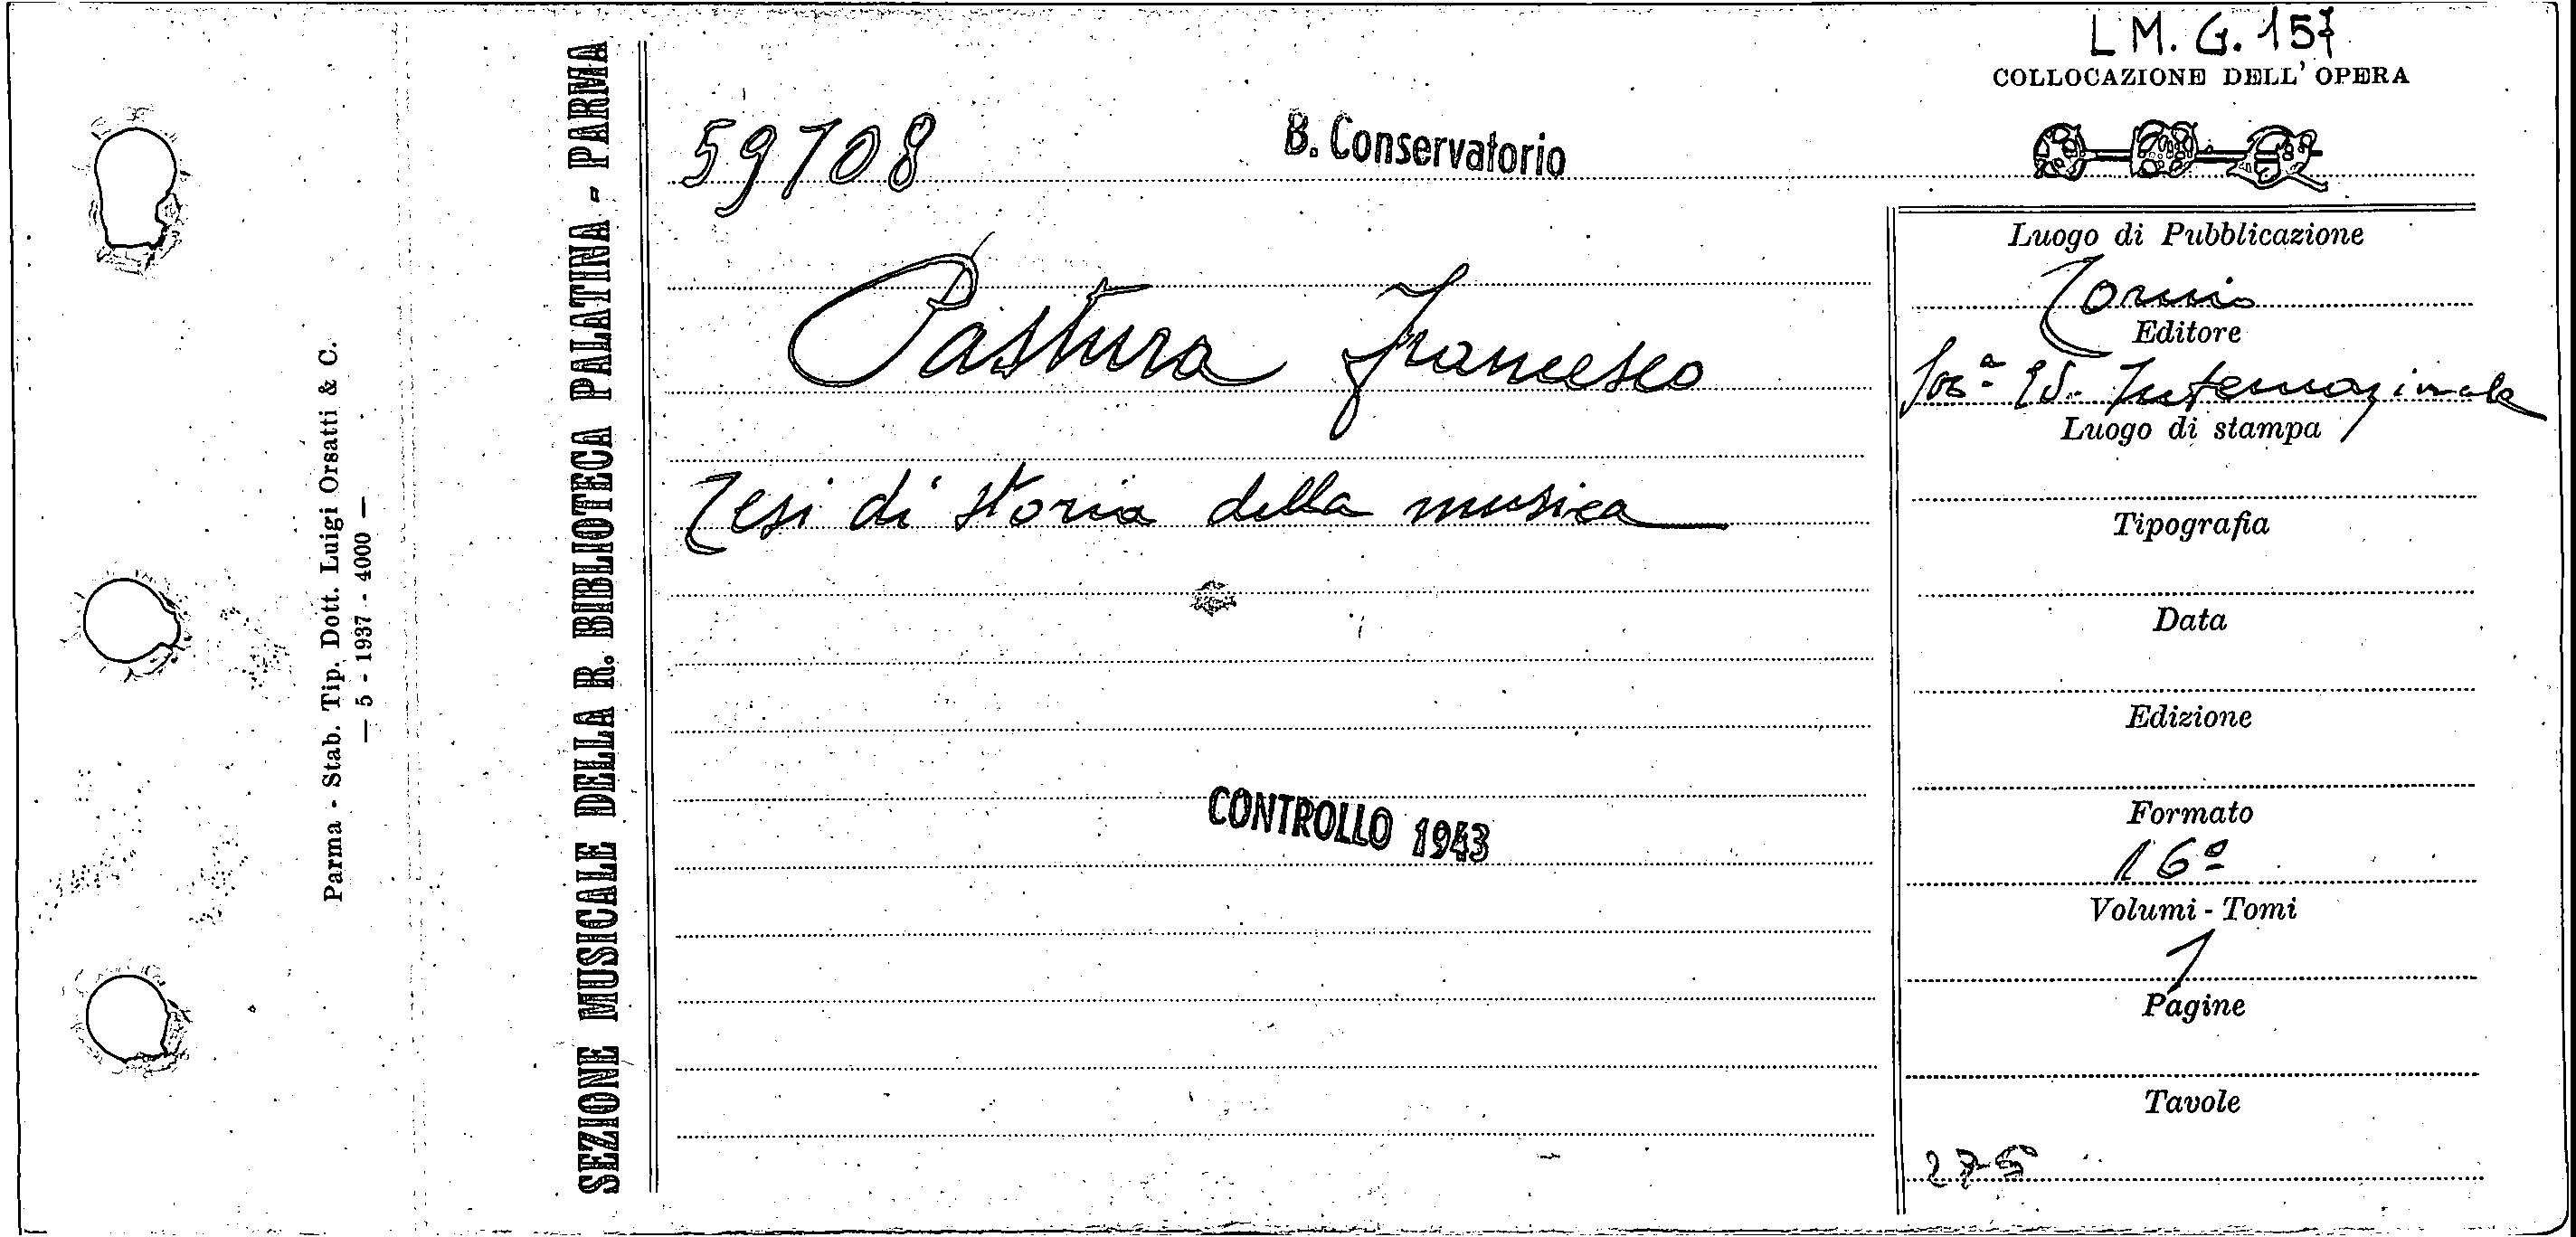 L M. G. 157
COLLOCAZIONE DELL' OPERA
59708
B. Conservatorio
Pastura Francesco
Tesi di storia della musica
CONTROLLO 1943
Luogo di Pubblicazione
Torino
Editore
Soc.à Ed. Internazionale
Luogo di stampa
Tipografia
Data
Edizione
Formato
16º
Volumi - Tomi
1
Pagine
Tavole
SEZIONE MUSICALE DELLA R. BIBLIOTECA PALATINA - PARMA
Parma - Stab. Tip. Dott. Luigi Orsatti & C.
— 5 - 1937 - 4000 —